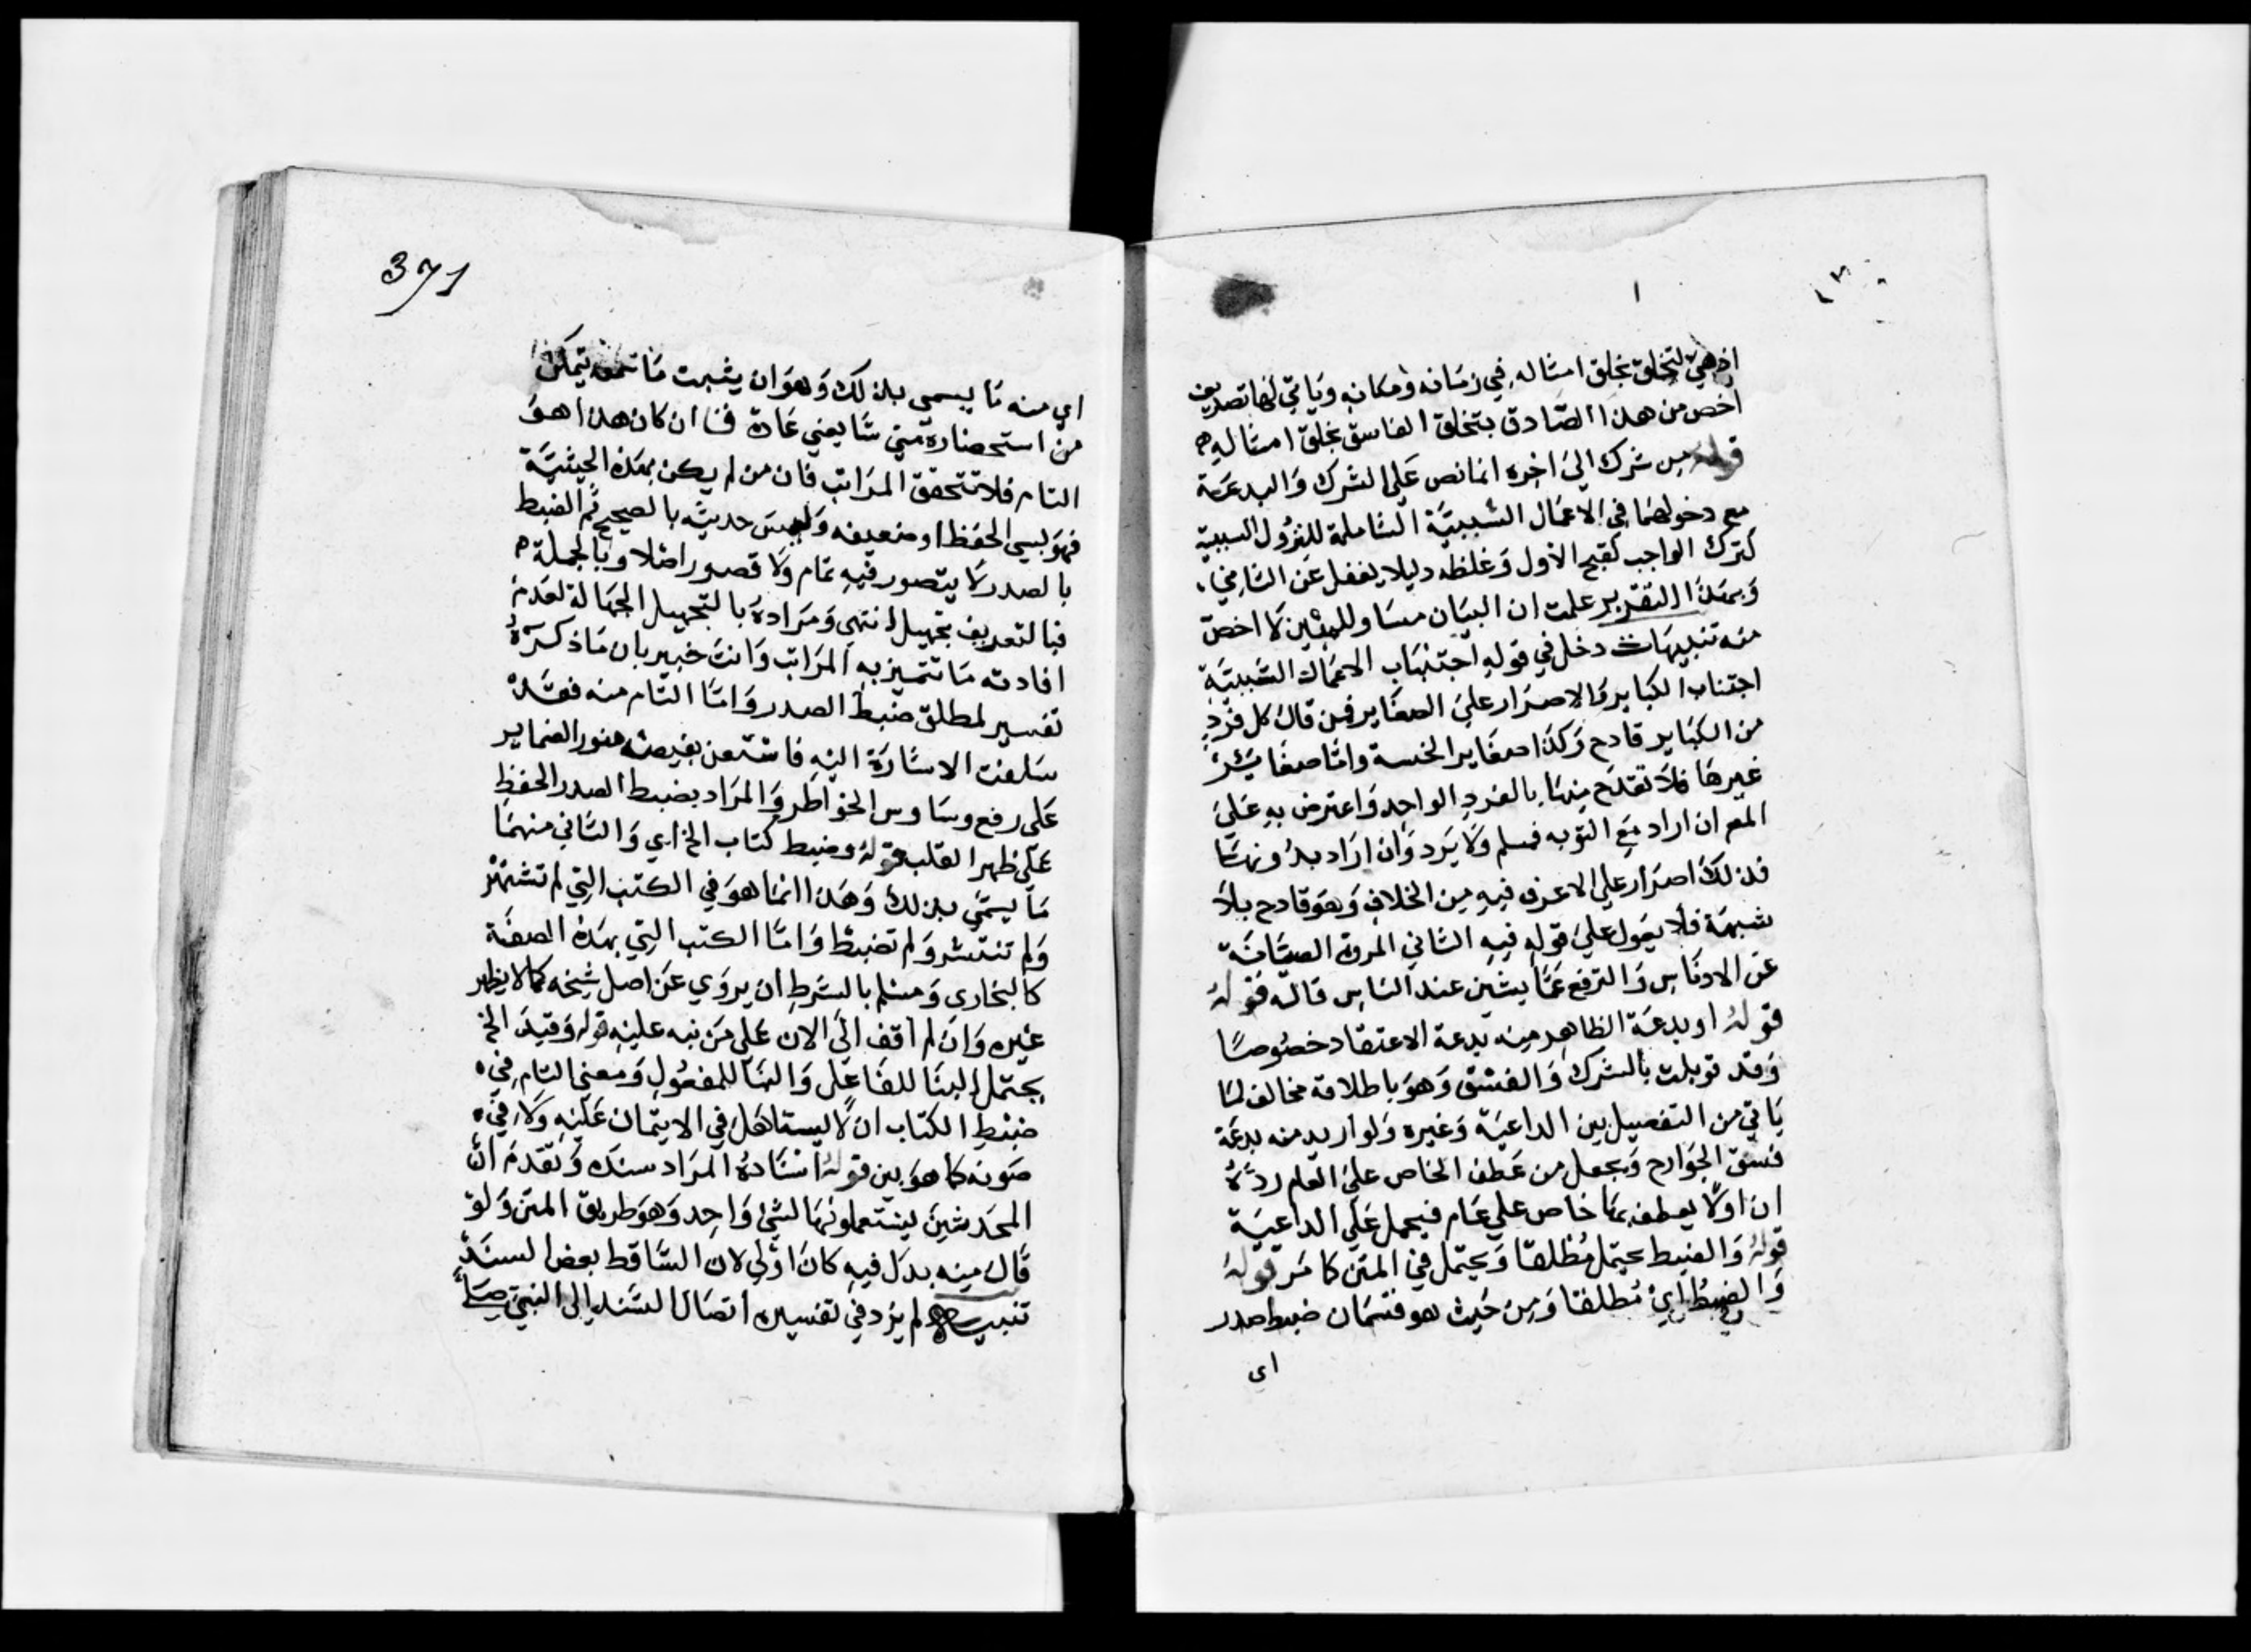 اذ هي لتخلق بخلق امثاله في زمانه ومكانه وياتي لها تعريف
اخص من هذا الصادق بتخلق الفاسق بخلق امثاله
قوله من شرك الي اخره انما نص علي الشرك والبدعة
مع دخولهما في الاعمال السيئة الشاملة
كترك الواجب لقبح الاول وغلظه وليلا يغفل عن الثاني
وبهذا التقدير علمت ان البيان مساو للمبين لا اخص
منه تنبيهات دخل في قوله اجتناب الاعمال السيئة
اجتناب الكباير والاصرار علي الصغاير فمن قال كل فرد
من الكباير قادح وكذا صغاير الخسة واما صغاير
غيرها فلا تقدح منها بالفرد الواحد واعترض به علي
المص ان اراد مع التوبه فمسلم ولا يرد وان اراد بدونها
فذلك اصرار علي الاعرف فيه من الخلاف وهو قادح بلا
شبهة فلا يعول علي قوله فيه الثاني المروة الصيانة
عن الادناس والترفع عما يشين عند الناس قاله قوله
قوله او بدعة الظاهر منه بدعة الاعتقاد خصوصا
وقد قوبلت بالشرك والفسق وهو باطلاقه مخالف لما
ياتي من التفصيل بين الداعية وغيره ولو اريد منه بدعة
فسق الجوارح ويجعل من عطف الخاص علي العام رده
ان اولا يعطف بها خاص علي عام فيحمل علي الداعية
قوله والضبط يحتمل مطلقا ويحتمل في المتن كما مر قوله
والضبط اي مطلقا ومن حيث هو قسمان ضبط صدر
اي
371
اي منه ما يسمي بذلك وهو ان يثبت ما سمعه يتمكن
من استحضاره متي شا يعني عادة فنا ان كان هذا هو
التام فلا تتحقق المراتب فان من لم يكن بهذه الحيثية
فهو سيي الحفظ او ضعيفه وليس حديثه بالصحيح ثم الضبط
بالصدر لا يتصور فيه تمام ولا قصور اصلا وبالجملة
فبالتعريف تجهيل انتهي ومراده بالتجهيل الجهالة لعدم
افادته ما تتميز به المراتب وانت خبير بان ما ذكره
تفسير لمطلق ضبط الصدر واما التام منه فقد
سلفت الاشارة اليه فاستعن بفيض منور الضماير
علي رفع وساوس الخواطر والمراد بضبط الصدر الحفظ
علي ظهر القلب قوله وضبط كتاب الخ اي والثاني منهما
ما يسمي بذلك وهذا انما هو في الكتب التي لم تشتهر
ولم تنتشر ولم تضبط واما الكتب التي بهذه الصفة
كالبخاري ومسلم بالشرط ان يروي عن اصل شيخه كما لا يظهر
غيره وان لم اقف الي الان علي من نبه عليه قوله وقيد الخ
يحتمل البنا للفاعل والبنا للمفعول ومعني التام في
ضبط الكتاب ان لا يستاهل في الايتمان عليه ولا في
صونه كما هو بين قوله اسناده المراد سنده وتقدم ان
المحدثين يستعملونها لشي واحد وهو طريق المتن ولو
قال منه بدل فيه كان اولي لان الساقط بعض السند
تنبيه لم يزد في تفسيره اتصال السند الي النبي صلي